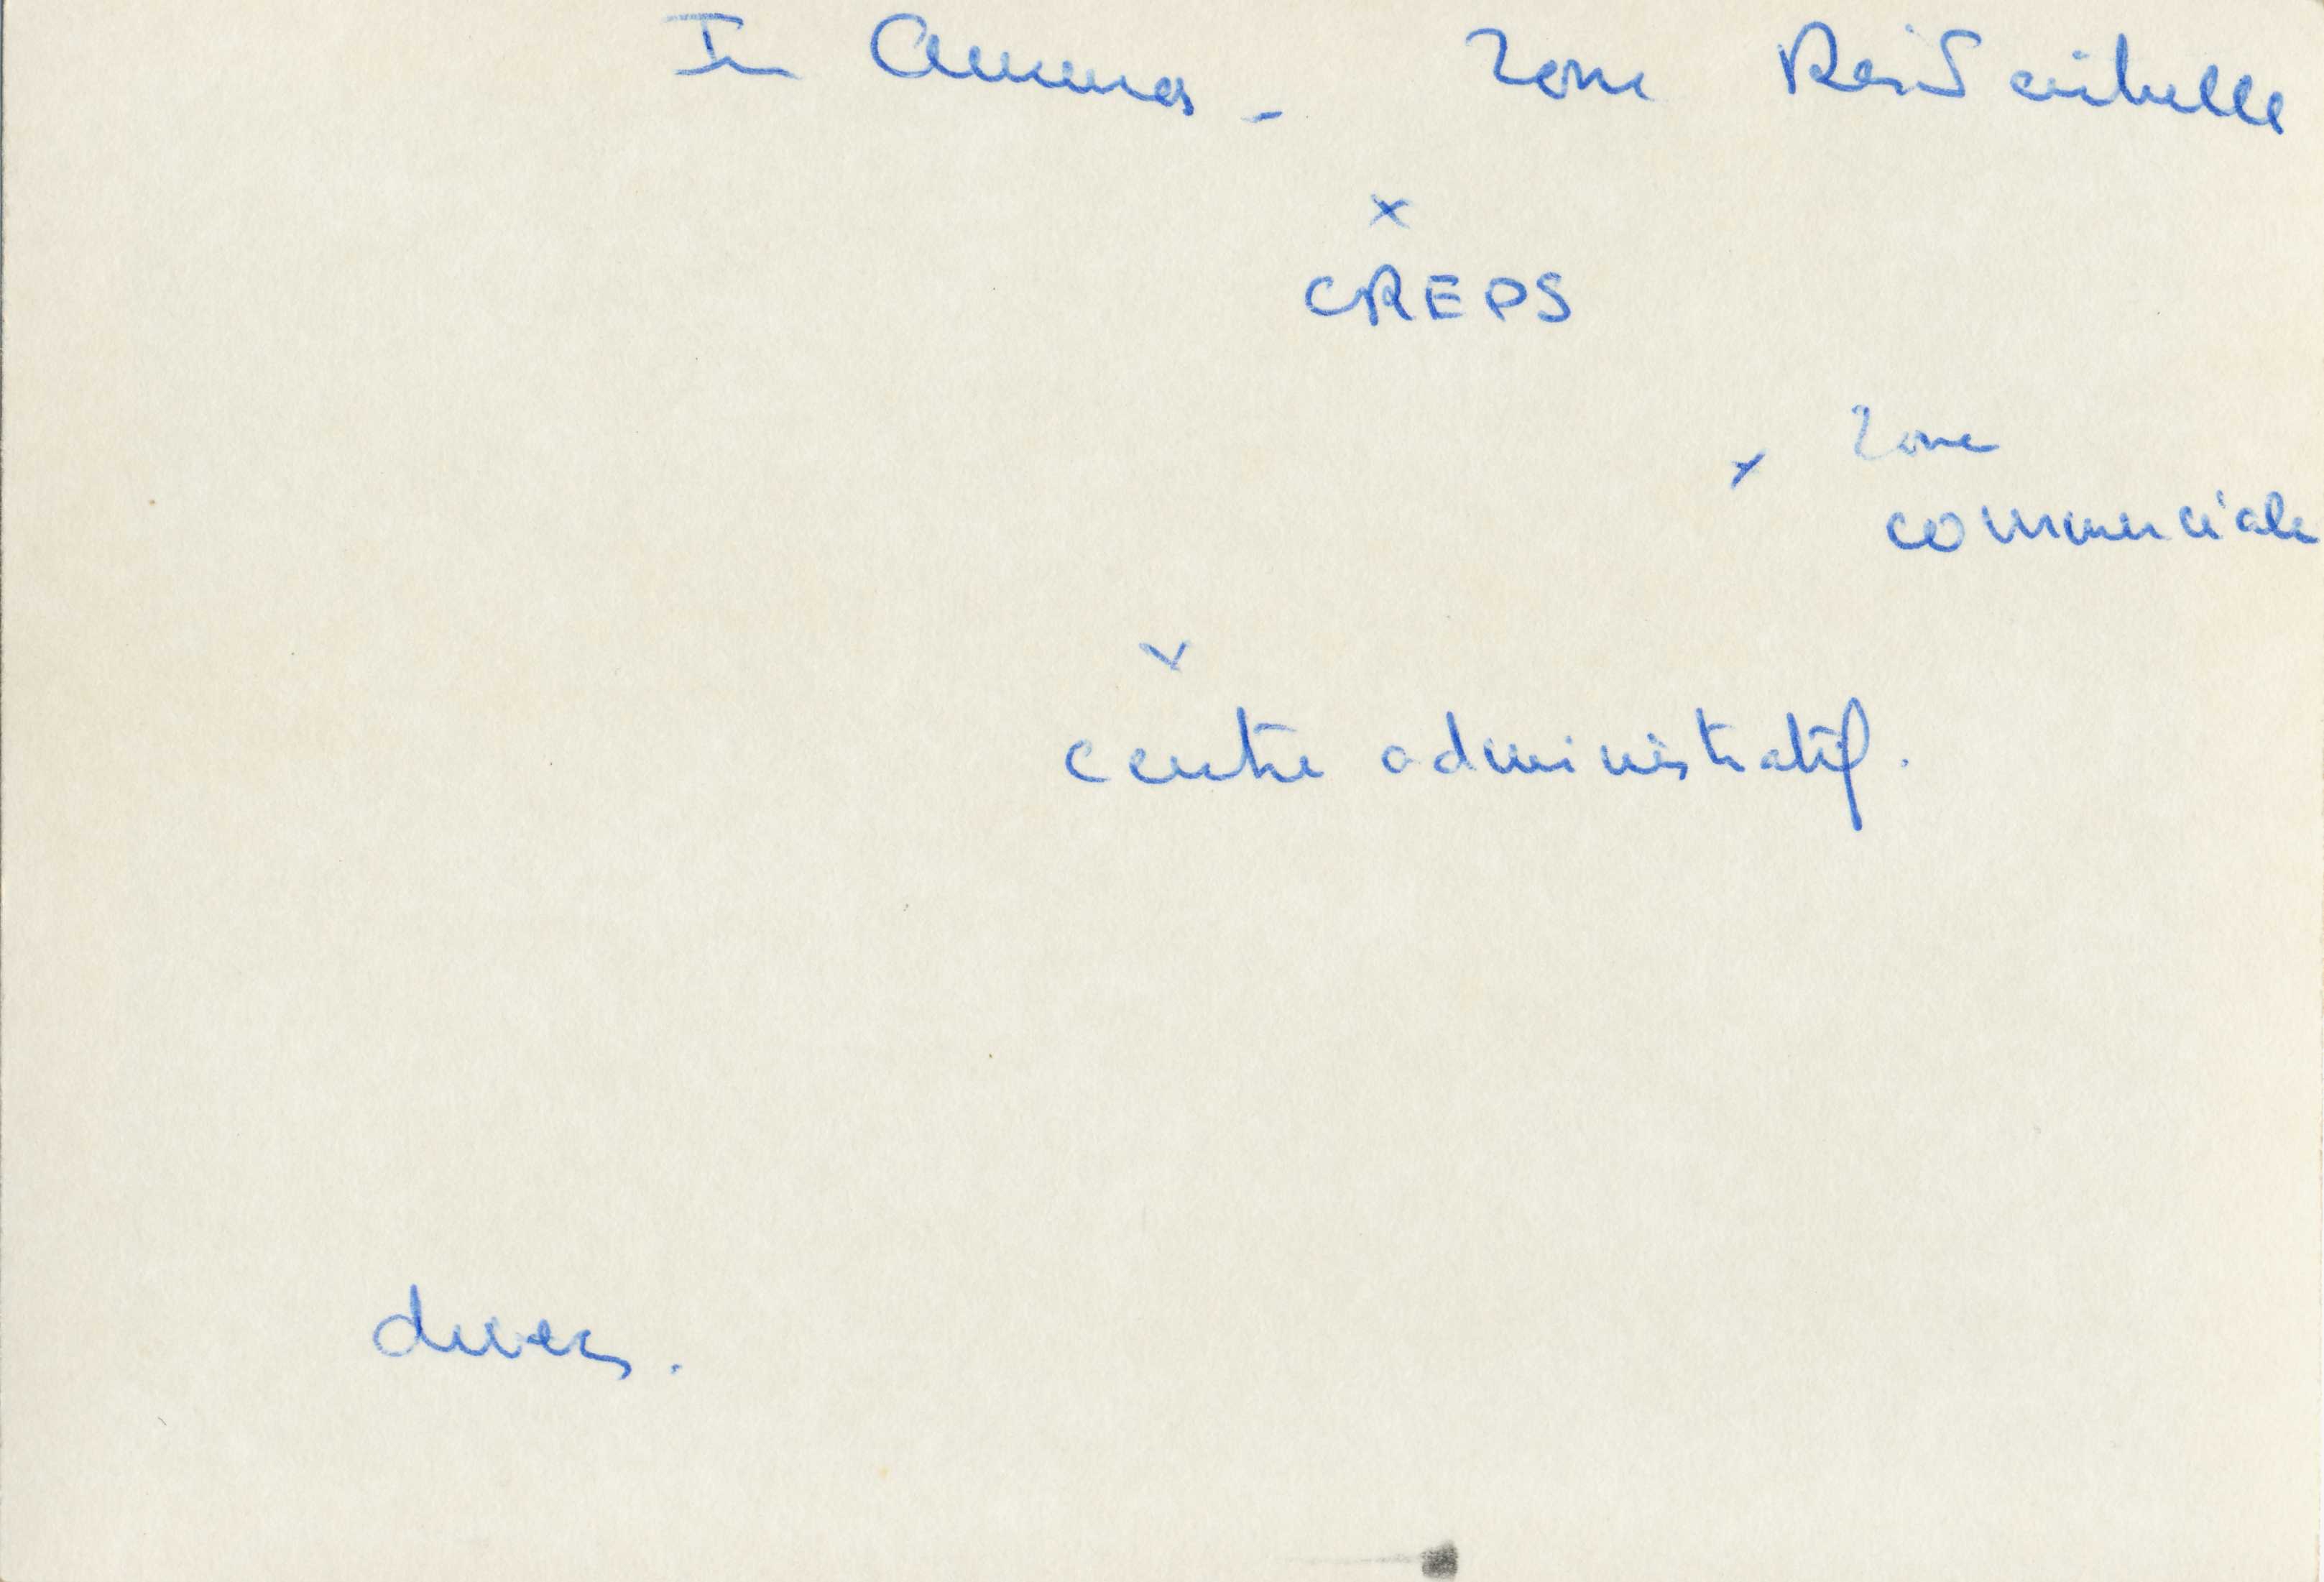 In Amenas - Zone Résidentielle
x
CREPS
x Zone
commerciale
x
centre administratif.
divers.